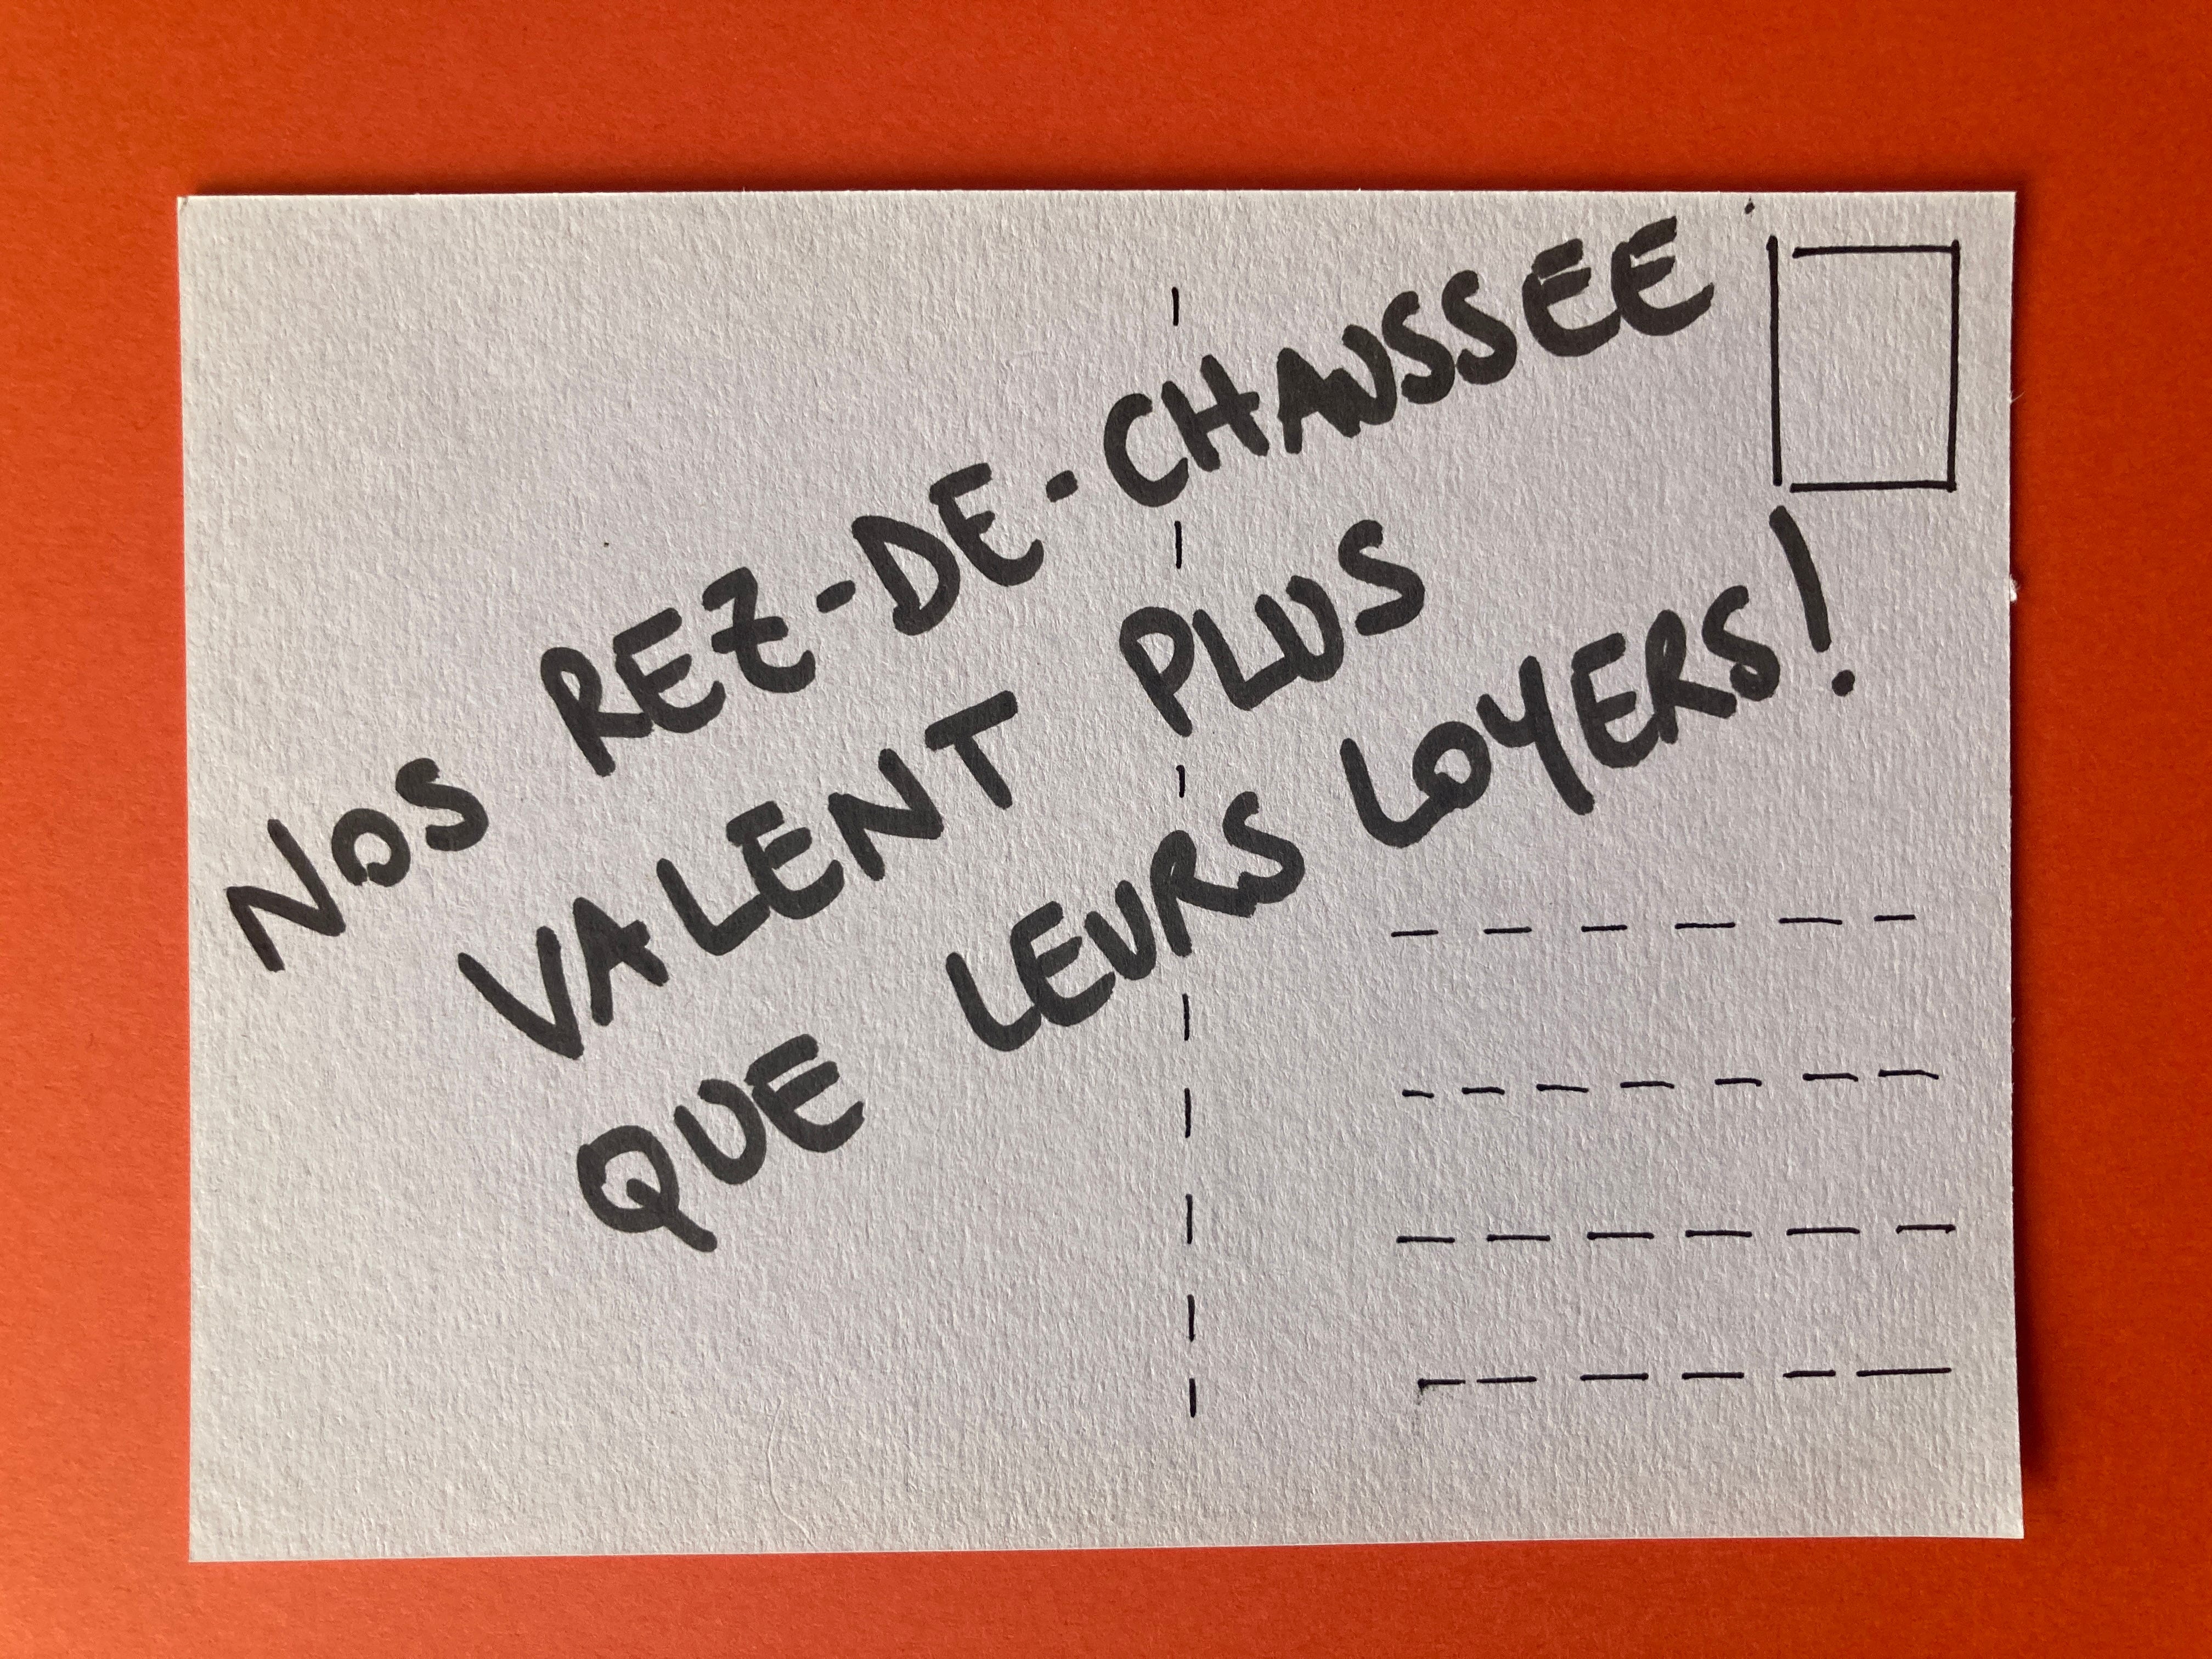 NOS REZ-DE-CHAUSSEE
VALENT PLUS
QUE LEURS LOYERS!